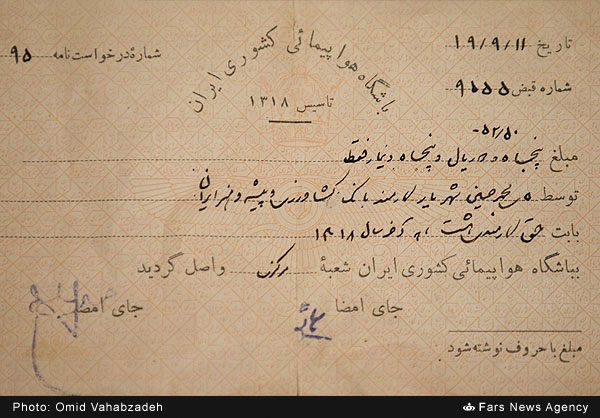 باشگاه هواپیمائی کشوری ایران
تاسیس ۱۳۱۸
تاریخ ۱۹/۹/۱۱
شمارهٔ درخواست نامه ۹۵
شماره قبض ۹۱۵۵
۵۲/۵۰
مبلغ پنجاه و دو ریال و پنجاه دینار فقط
توسط محمدحسین شهریار کارمند بانک کشاورزی و پیشه و هنر ایران
بابت حق کارمندی هشت آخر سال ۱۳۱۸
بباشگاه هواپیمائی کشوری ایران شعبهٔ مرکز واصل گردید
جای امضا
جای امضا
مبلغ با حروف نوشته شود
Photo: Omid Vahabzadeh
Fars News Agency